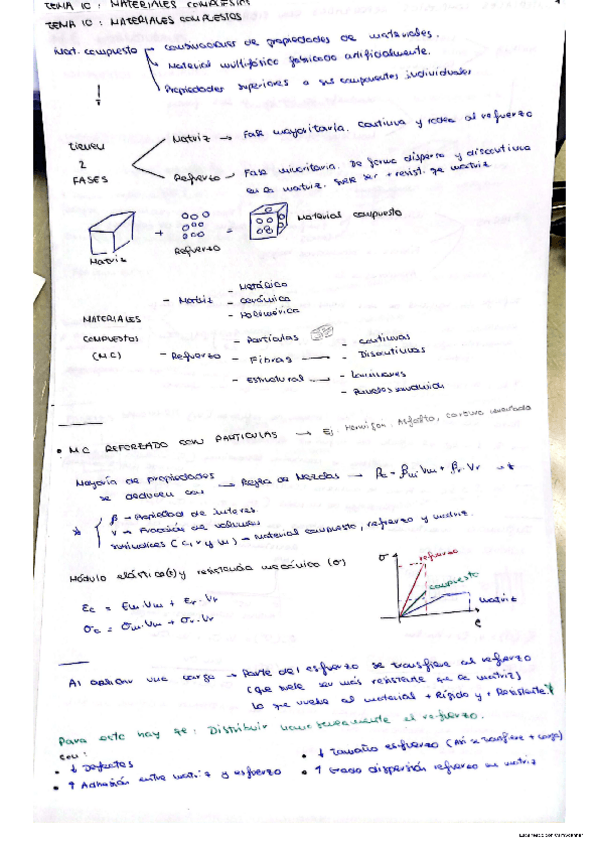 TEMA 10: MATERIALES COMPUESTOS
TEMA 10: MATERIALES COMPUESTOS
Mat. compuesto → combinaciones de propiedades de materiales.
Material multifásico fabricado artificialmente.
Propiedades superiores a sus componentes individuales
Tienen
2
FASES
Matriz → Fase mayoritaria. Continua y rodea al refuerzo
Refuerzo → Fase minoritaria. De forma dispersa y discontinua
en la matriz. Suele ser + resist. qe matriz
Matriz + Refuerzo = Material compuesto
MATERIALES
COMPUESTOS
(MC)
- Matriz
- Metálica
- Cerámica
- Polimérica
- Refuerzo
- Partículas
- Fibras
- continuas
- Discontinuas
- Estructural
- Laminares
- Paneles sandwich
• MC REFORZADO CON PARTICULAS → Ej. Hormigón. Asfalto,
Mayoría de propiedades
se deducen con → Regla de Mezclas → βc = βm·Vm + βr·Vr *
* β → Propiedad de interés
V → Fracción de volumen
subíndices (c, r y m) → Material compuesto, refuerzo y matriz.
Módulo elástico (E) y resistencia mecánica (σ)
Ec = Em·Vm + Er·Vr
σc = σm·Vm + σr·Vr
σ
refuerzo
compuesto
matriz
Al aplicar una carga → Parte del esfuerzo se transfiere al refuerzo
(que suele ser más resistente que la matriz)
Lo que vuelve al material + Rígido y + Resistente
Para esto hay qe: Distribuir homogéneamente el refuerzo.
con:
• ↓ Defectos
• ↑ Adhesión entre matriz y esfuerzo
• ↓ Tamaño esfuerzo (Así se transfiere + carga)
• ↑ Grado dispersión refuerzo en matriz